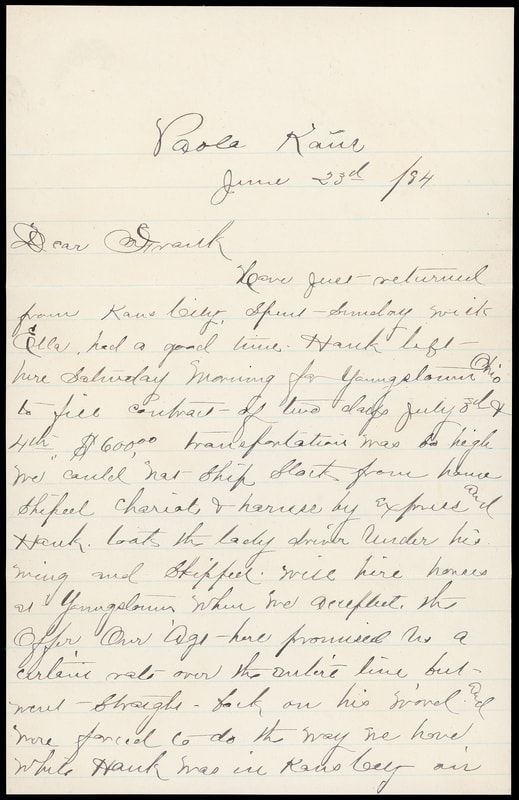 Paola Kans
June 23d /84
Dear Frank
Have just returned
from Kans City, Spent Sunday with
Ella, had a good time. Hank left
here Saturday Morning for Youngstown Ohio
to fill contract of two days July 3d &
4th $600.00 transportation was so high
We could not Ship Stock from home
Shiped Chariot & harnise by Express And
Hank. took the lady driver Under his
wing and Skipped. will hire horses
at Youngstown When We accepted. the
Offer Our Agt here promised Us a
certain rate over the entire line but
went Straight back on his word. And
were forced to do the Way We have
While Hank was in Kans City on